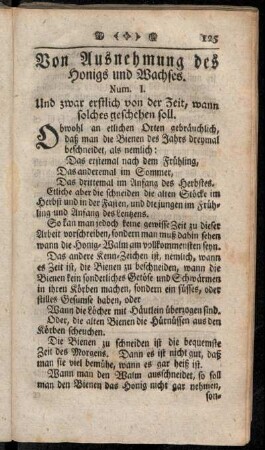 125
Von Ausnehmung des
Honigs und Wachses.
Num. I.
Und zwar erstlich von der Zeit, wann
solches geschehen soll.
Obwohl an etlichen Orten gebräuchlich,
daß man die Bienen des Jahrs dreymal
beschneidet, als nemlich:
Das erstemal nach dem Frühling,
Das anderemal im Sommer,
Das drittemal im Anfang des Herbstes.
Etliche aber die schneiden die alten Stöcke im
Herbst und in der Fasten, und die jungen im Früh-
ling und Anfang des Lenzens.
So kan man jedoch keine gewisse Zeit zu dieser
Arbeit vorschreiben, sondern man muß dahin sehen
wann die Honig-Walm am vollkommensten seyn.
Das andere Kenn-Zeichen ist, nemlich, wann
es Zeit ist, die Bienen zu beschneiden, wann die
Bienen kein sonderliches Getöse und Schwärmen
in ihren Körben machen, sondern ein süsses, oder
stilles Gesumse haben, oder
Wann die Löcher mit Häutlein überzogen sind.
Oder, die alten Bienen die Hürnüssen aus den
Körben scheuchen.
Die Bienen zu schneiden ist die bequemste
Zeit des Morgens. Dann es ist nicht gut, daß
man sie viel bemühe, wann es gar heiß ist.
Wann man den Walm ausschneidet, so soll
man den Bienen das Honig nicht gar nehmen,
son-